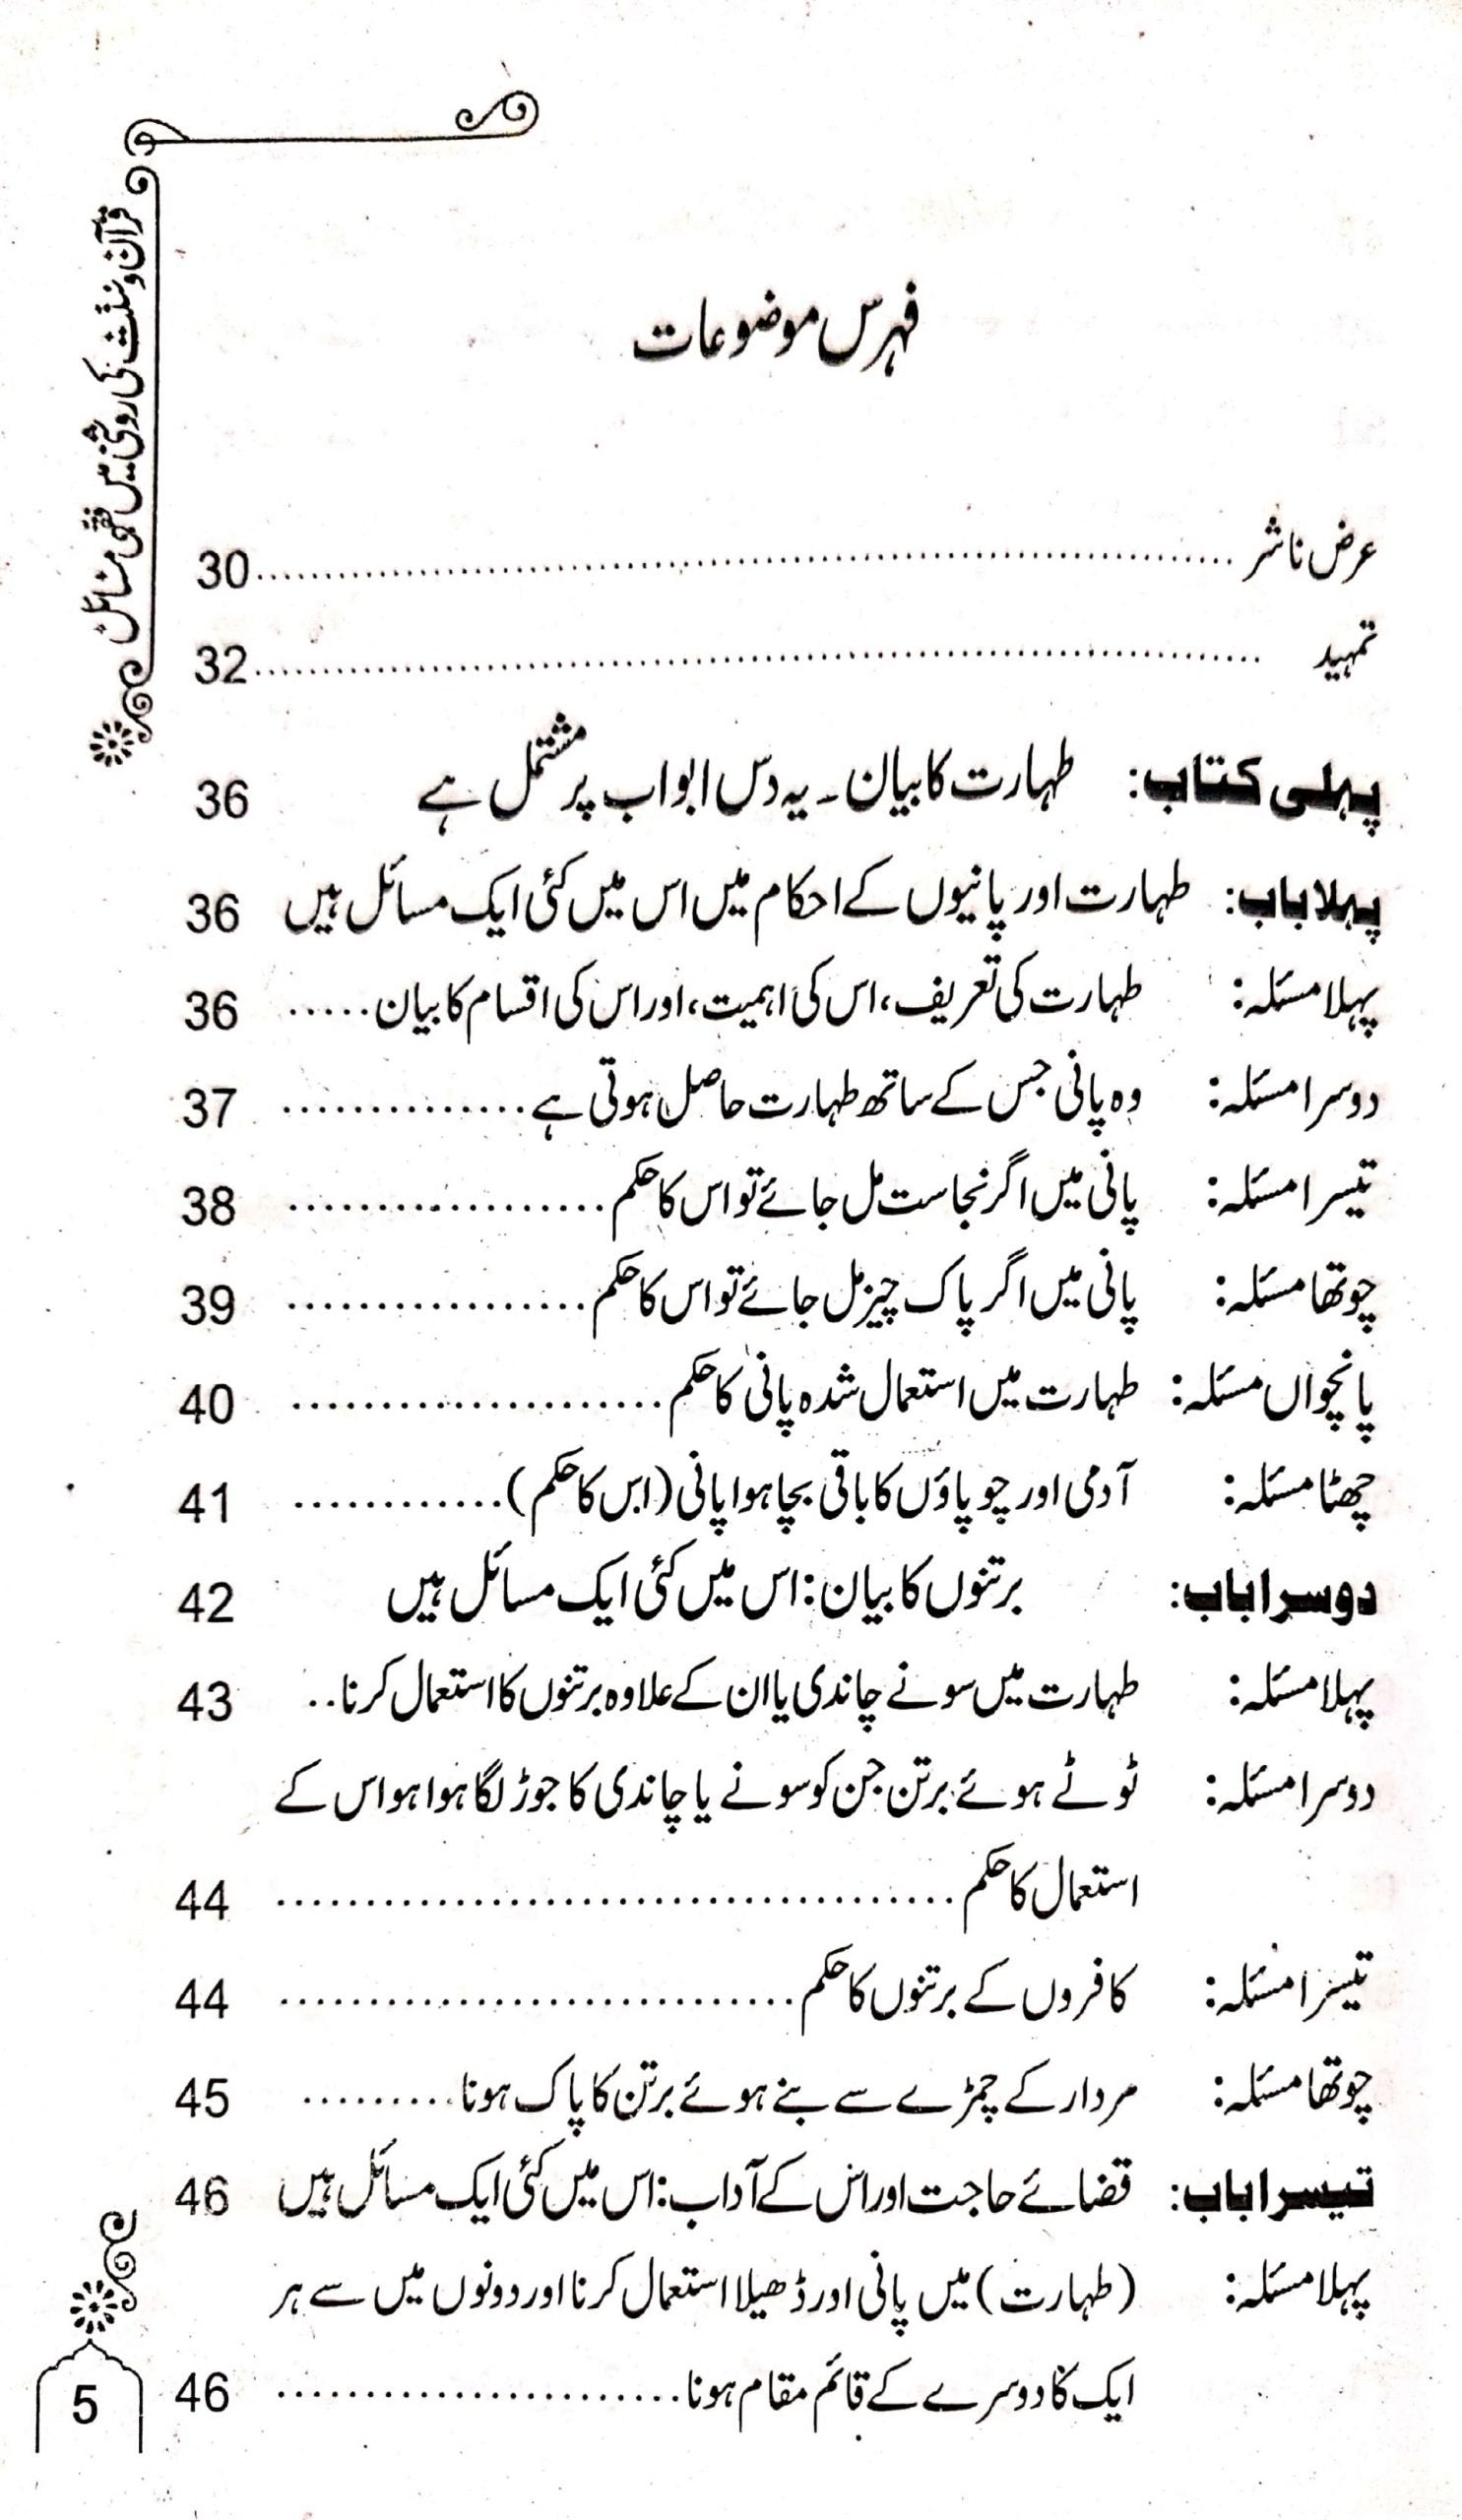 قرآن وسنت کی روشنی میں فقہی مسائل
فہرس موضوعات
عرض ناشر ........................................ 30
تمہید ........................................ 32
پہلی کتاب: طہارت کا بیان۔ یہ دس ابواب پر مشتمل ہے 36
پہلا باب: طہارت اور پانیوں کے احکام میں اس میں کئی ایک مسائل ہیں 36
پہلا مسئلہ: طہارت کی تعریف، اس کی اہمیت، اور اس کی اقسام کا بیان ..... 36
دوسرا مسئلہ: وہ پانی جس کے ساتھ طہارت حاصل ہوتی ہے .............. 37
تیسرا مسئلہ: پانی میں اگر نجاست مل جائے تو اس کا حکم .................. 38
چوتھا مسئلہ: پانی میں اگر پاک چیز مل جائے تو اس کا حکم ................. 39
پانچواں مسئلہ: طہارت میں استعمال شدہ پانی کا حکم ..................... 40
چھٹا مسئلہ: آدمی اور چوپاؤں کا باقی بچا ہوا پانی (اس کا حکم) ............ 41
دوسرا باب: برتنوں کا بیان: اس میں کئی ایک مسائل ہیں 42
پہلا مسئلہ: طہارت میں سونے چاندی یا ان کے علاوہ برتنوں کا استعمال کرنا .. 43
دوسرا مسئلہ: ٹوٹے ہوئے برتن جن کو سونے یا چاندی کا جوڑ لگا ہوا ہو اس کے
استعمال کا حکم ...................................... 44
تیسرا مسئلہ: کافروں کے برتنوں کا حکم ............................. 44
چوتھا مسئلہ: مردار کے چمڑے سے بنے ہوئے برتن کا پاک ہونا ......... 45
تیسرا باب: قضائے حاجت اور اس کے آداب: اس میں کئی ایک مسائل ہیں 46
پہلا مسئلہ: (طہارت) میں پانی اور ڈھیلا استعمال کرنا اور دونوں میں سے ہر
ایک کا دوسرے کے قائم مقام ہونا ....................... 46
5